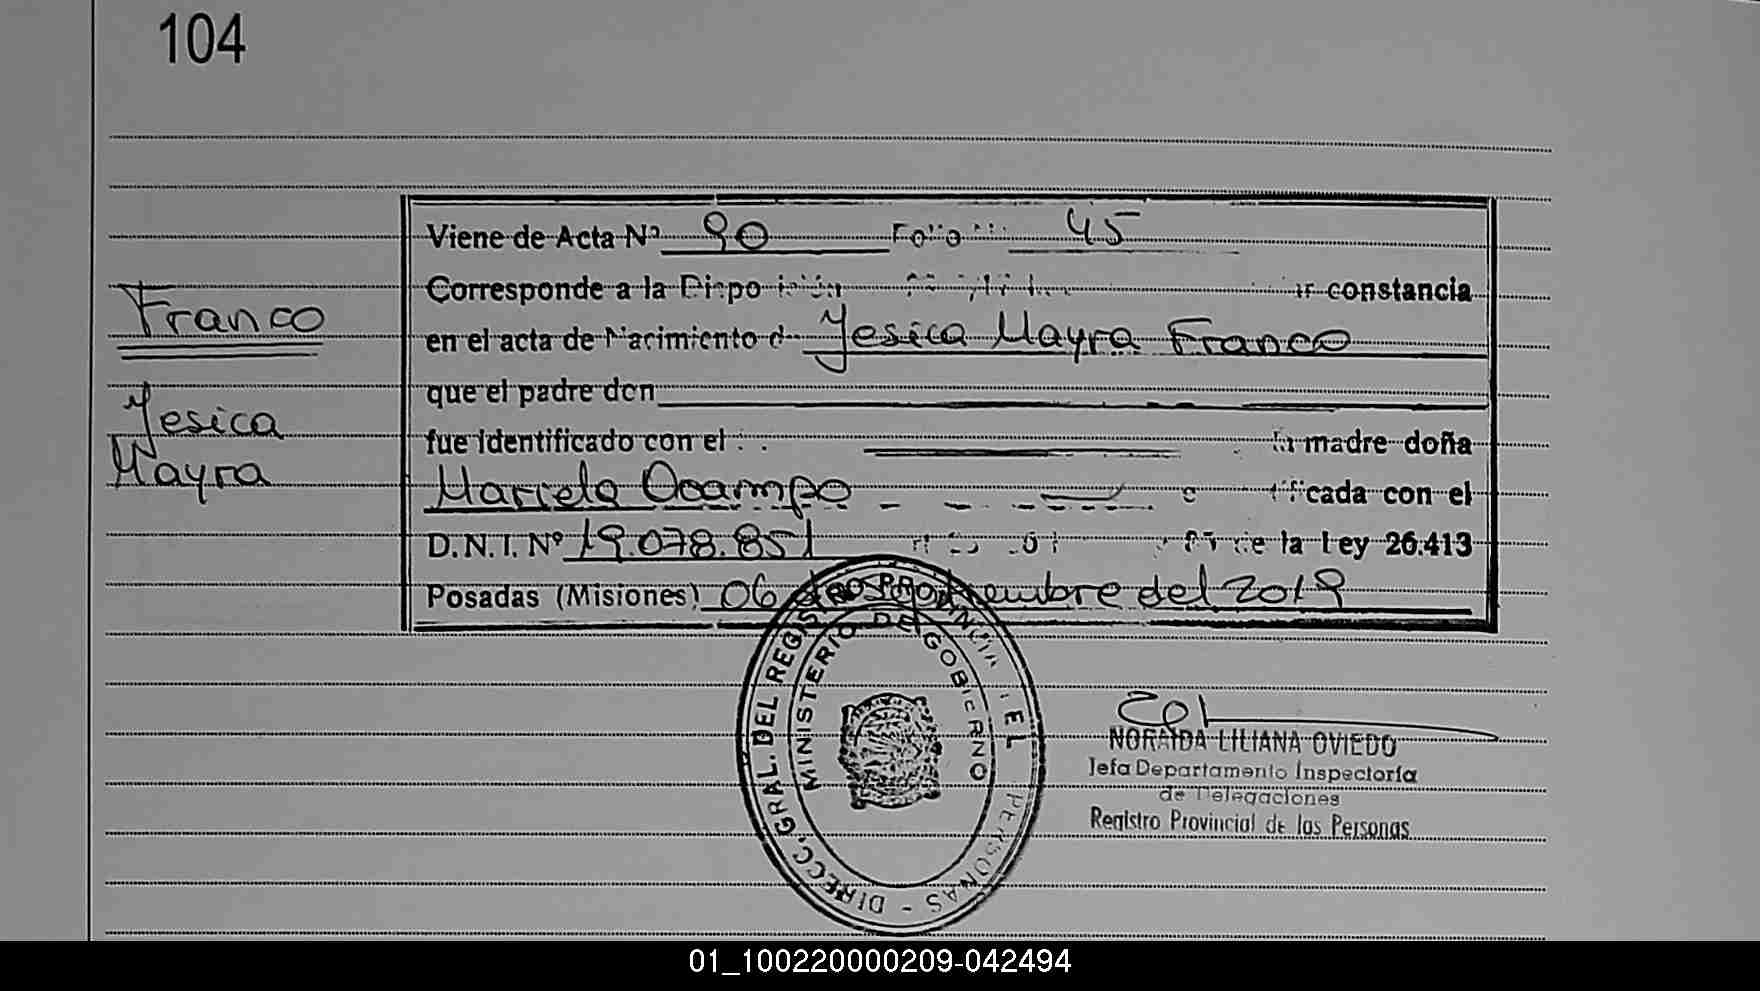 104
Viene de Acta Nº 90 Folio 45
Corresponde a la constancia
Franco
en el acta de Nacimiento d Yesica Mayra Franco
que el padre don
Yesica
fue identificado con el la madre doña
Mayra
Mariela Ocampo cada con el
D.N.I. Nº 19.078.851 de la Ley 26.413
Posadas (Misiones) 06 embre del 2019
DIRECC. GRAL. DEL REGISTRO PROVINCIAL DE L PERSONAS -
MINISTERIO DE GOBIERNO
NORAIDA LILIANA OVIEDO
Jefa Departamento Inspectoría
de Delegaciones
Registro Provincial de las Personas
01_100220000209-042494